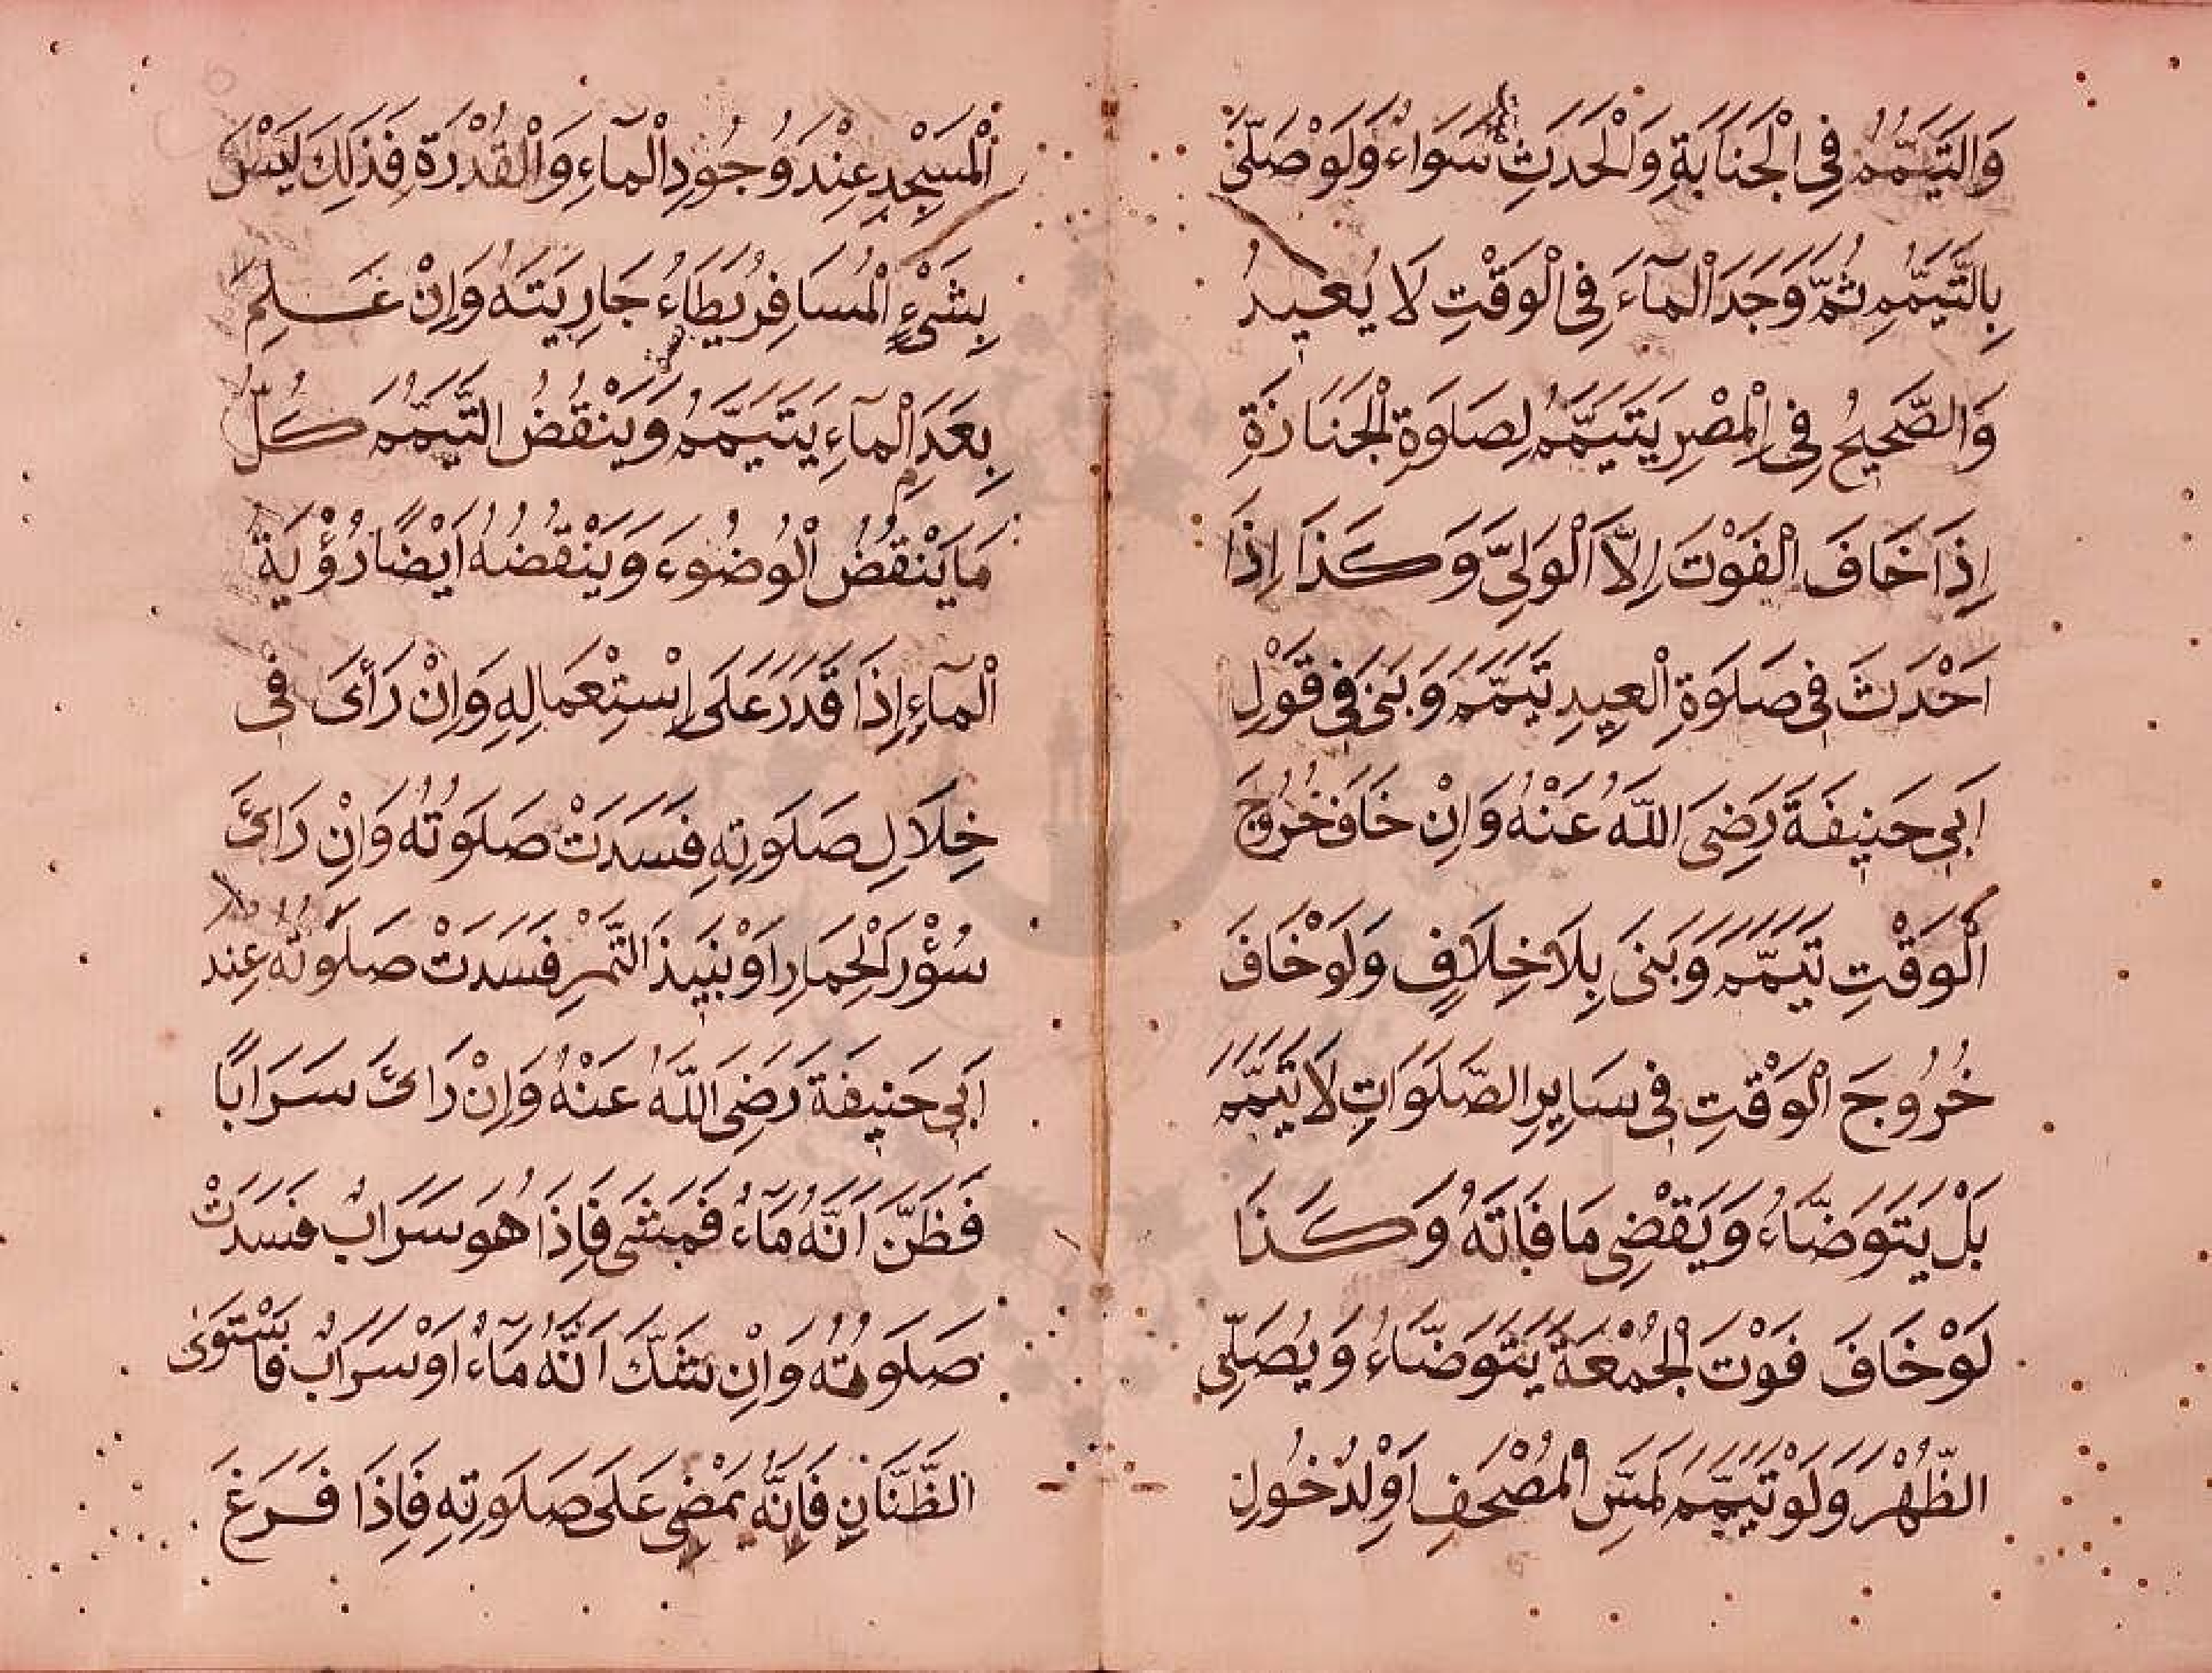 وَالتَّيَمُّمُ فِي الْجَنَابَةِ وَالْحَدَثِ سَوَاءٌ وَلَوْ صَلّىٰ
بِالتَّيَمُّمِ ثُمَّ وَجَدَ الْمآءَ فِي الْوَقْتِ لَا يُعِيدُ
وَالصَّحِيحُ فِي الْمِصْرِ يَتَيَمَّمُ لِصَلَوةِ الْجَنَازَةِ
اِذَا خَافَ الْفَوْتَ اِلَّا الْوَلِيَّ وَكَذَا اِذَا
اَحْدَثَ فِي صَلَوةِ الْعِيدِ تَيَمَّمَ وَبَنىَ فِي قَوْلِ
اَبِي حَنِيفَةَ رَضِيَ اللّٰهُ عَنْهُ وَاِنْ خَافَ خُرُوجَ
الْوَقْتِ تَيَمَّمَ وَبَنىَ بِلَا خِلَافٍ وَلَوْ خَافَ
خُرُوجَ الْوَقْتِ فِي سَايِرِ الصَّلَوَاتِ لَا تَيَمَّمَ
بَلْ يَتَوَضَّاءُ وَيَقْضِي مَا فَاتَهُ وَكَذَا
لَوْ خَافَ فَوْتَ الْجُمْعَةِ يَتَوَضَّاءُ وَيُصَلِّي
الظُّهْرَ وَلَوْ تَيَمَّمَ لِمَسِّ الْمُصْحَفِ اَوْ لِدُخُولِ
الْمَسْجِدِ عِنْدَ وُجُودِ الْمآءِ وَالْقُدْرَةِ فَذَلِكَ لَيْسَ
بِشَيْءٍ الْمُسَافِرُ يَطَاءُ جَارِيَتَهُ وَاِنْ عَلِمَ
بِعَدَمِ الْمآءِ يَتَيَمَّمُ وَيَنْقُضُ التَّيَمُّمَ كُلُّ
مَا يَنْقُضُ الْوُضُوءَ وَيَنْقُضُهُ اَيْضًا رُؤْيَةُ
الْمآءِ اِذَا قَدَرَ عَلَى اِسْتِعْمَالِهِ وَاِنْ رَأىَ فِي
خِلَالِ صَلَوتِهِ فَسَدَتْ صَلَوتُهُ وَاِنْ رَائَ
سُؤْرَ الْحِمَارِ اَوْ نَبِيذَ التَّمْرِ فَسَدَتْ صَلَوتُهُ عِنْدَ
اَبِي حَنِيفَةَ رَضِيَ اللّٰهُ عَنْهُ وَاِنْ رَائَ سَرَابًا
فَظَنَّ اَنَّهُ مَآءٌ فَمَشىَ فَاِذَا هُوَ سَرَابٌ فَسَدَتْ
صَلَوتُهُ وَاِنْ شَكَّ اَنَّهُ مَآءٌ اَوْ سَرَابٌ فَاسْتَوَىٰ
الظَّنَّانِ فَاِنَّهُ يَمْضِي عَلَى صَلَوتِهِ فَاِذَا فَرَغَ